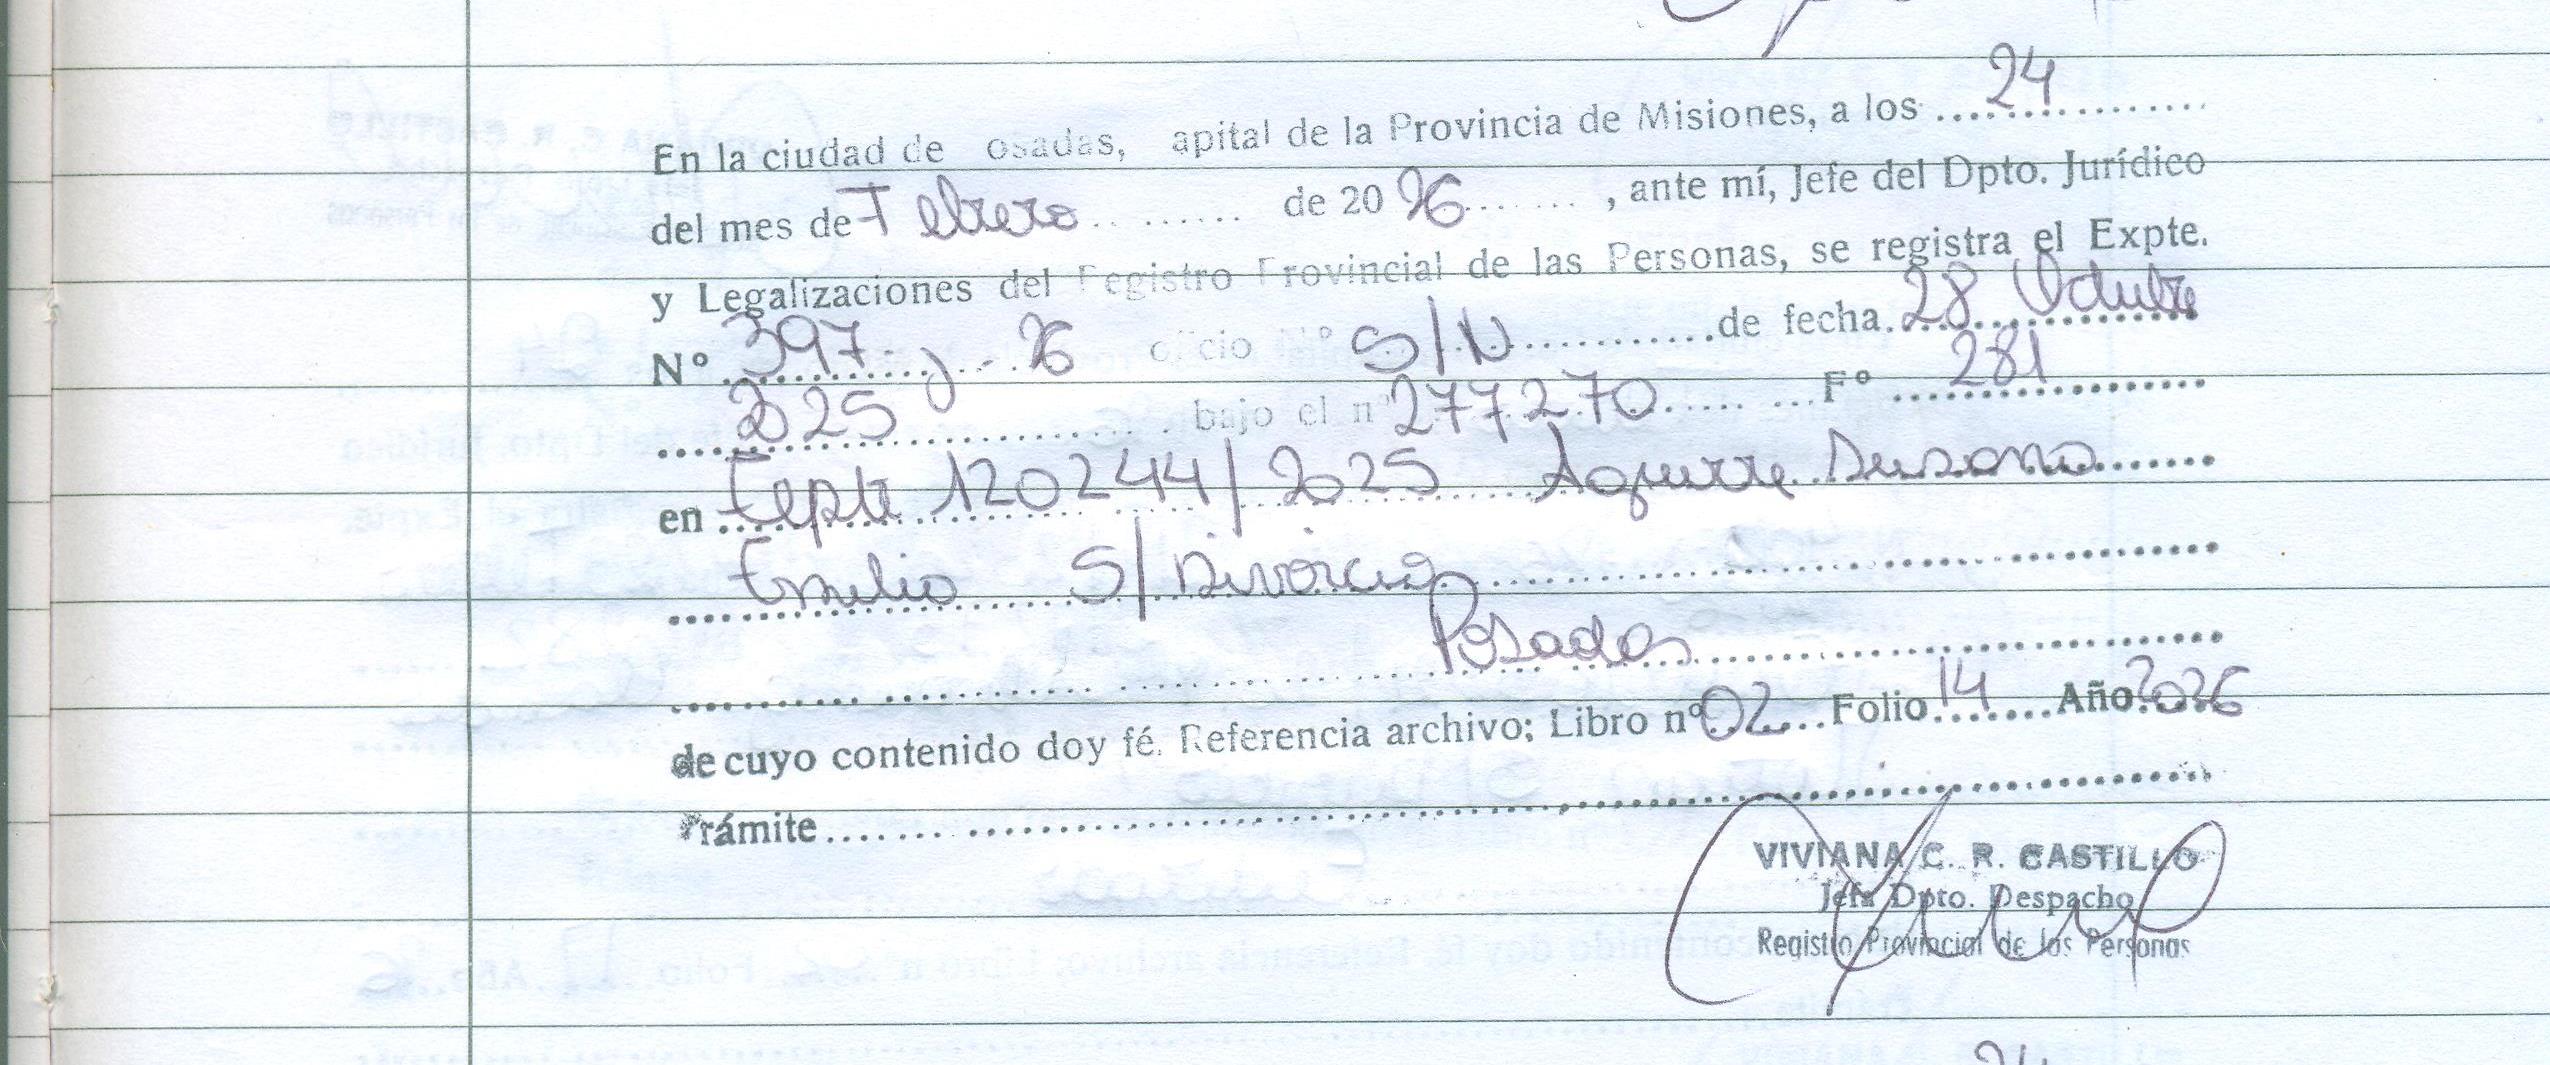 24
En la ciudad de osadas, apital de la Provincia de Misiones, a los ..................
del mes de Febrero .. ....... de 20 26 ....... , ante mí, Jefe del Dpto. Jurídico
y Legalizaciones del Registro Provincial de las Personas, se registra el Expte.
N° 397-J-26 oficio N° S/N ............de fecha. 28 Octubre
2025 ............... bajo el n° 277270 ...... ...F° 281
en Expte 120244/2025 Aguirre Susana
Emilio S/Divorcio
Posadas
de cuyo contenido doy fé. Referencia archivo; Libro nº 02 ...Folio 14 ....Año 2026
Trámite.......
VIVIANA C. R. CASTILLO
Jefa Dpto. Despacho
Registro Provincial de las Personas